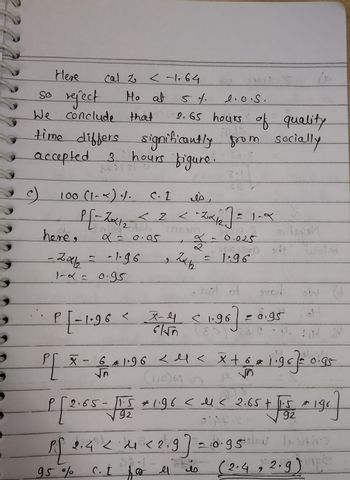 Here cal z < -1.64
so reject Ho at 5 %. l.o.s.
We conclude that 2.65 hours of quality
time differs significantly from socially
accepted 3 hours figure.
c) 100 (1-α) %. C.I is,
P[-Zα/2 < Z < -Zα/2] = 1-α
here, α = 0.05 , α/2 = 0.025
-Zα/2 = -1.96 , Zα/2 = 1.96
1-α = 0.95
∴ P[-1.96 < x̄-μ / 6/√n < 1.96] = 0.95
P[x̄ - 6/√n * 1.96 < μ < x̄ + 6/√n * 1.96] = 0.95
P[2.65 - √1.5/92 * 1.96 < μ < 2.65 + √1.5/92 * 1.96]
P[2.4 < μ < 2.9] = 0.95
95 % C.I for μ is (2.4, 2.9)